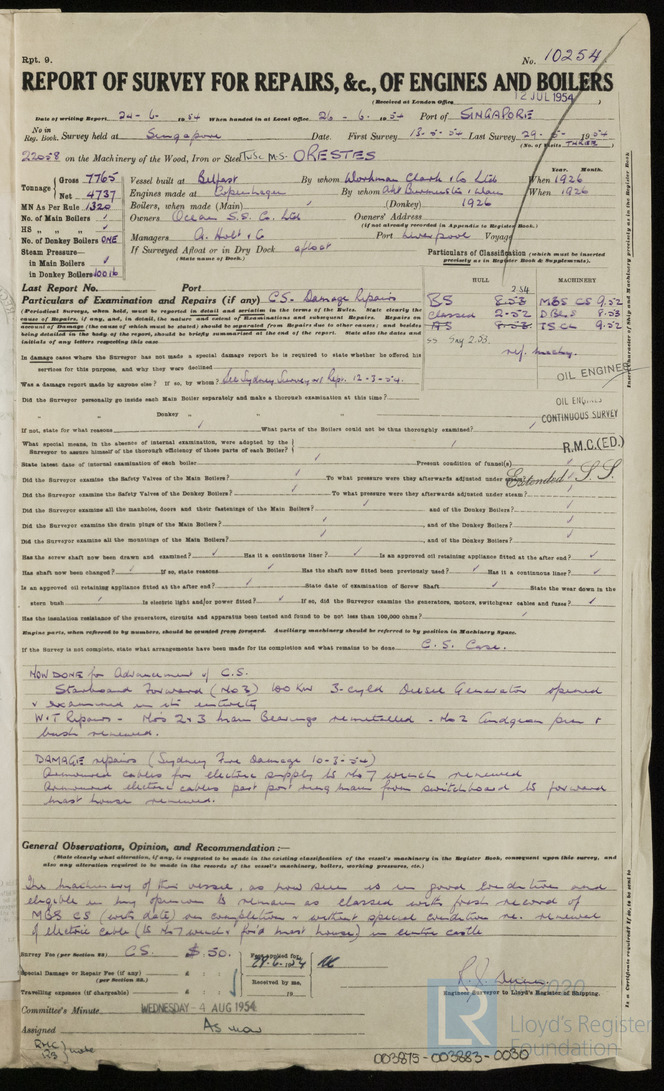 Rpt. 9.
No. 10254
REPORT OF SURVEY FOR REPAIRS, &c., OF ENGINES AND BOILERS
(Received at London Office 12 JUL 1954 )
Date of writing Report 24-6- 1954 When handed in at Local Office 26-6- 1954 Port of SINGAPORE
No in Reg. Book. Survey held at Singapore Date. First Survey 13-5-54 Last Survey 29-5- 1954
(No. of Visits THREE )
22058 on the Machinery of the Wood, Iron or Steel Tw Sc M.S. ORESTES
Tonnage Gross 7765 Net 4737
Vessel built at Belfast By whom Workman Clark & Co Ltd When 1926
Engines made at Copenhagen By whom When 1926
MN As Per Rule 1320 Boilers, when made (Main) (Donkey) 1926
No. of Main Boilers Owners Ocean S.S. Co. Ltd Owners' Address
(if not already recorded in Appendix to Register Book.)
No. of Donkey Boilers ONE Managers A. Holt & Co Port Liverpool Voyage
Steam Pressure—
in Main Boilers
in Donkey Boilers 100 lb
If Surveyed Afloat or in Dry Dock afloat
(State name of Dock.)
Particulars of Classification (which must be inserted precisely as in Register Book & Supplements).
HULL MACHINERY
2.54
BS 8.53 MBS CS 9.52
Classed 2-52 DBS 8.53
TSCL 9.52
SS Syd 2.53.
OIL ENGINES
OIL ENGINES
CONTINUOUS SURVEY
R.M.C.(ED.)
Extended S.S.
Last Report No. Port
Particulars of Examination and Repairs (if any) C.S. Damage Repairs
(Periodical Surveys, when held, must be reported in detail and seriatim in the terms of the Rules. State clearly the
cause of Repairs, if any, and, in detail, the nature and extent of Examinations and subsequent Repairs. Repairs on
account of Damage (the cause of which must be stated) should be separated from Repairs due to other causes; and besides
being detailed in the body of the report, should be briefly summarised at the end of the report. State also the dates and
initials of any letters respecting this case
In damage cases where the Surveyor has not made a special damage report he is required to state whether he offered his
services for this purpose, and why they were declined
Was a damage report made by anyone else? If so, by whom? See Sydney Surveyors Rept. 12-3-54.
Did the Surveyor personally go inside each Main Boiler separately and make a thorough examination at this time?
" " Donkey " " "
If not, state for what reasons What parts of the Boilers could not be thus thoroughly examined?
What special means, in the absence of internal examination, were adopted by the
Surveyor to assure himself of the thorough efficiency of those parts of each Boiler?
State latest date of internal examination of each boiler Present condition of funnel(s)
Did the Surveyor examine the Safety Valves of the Main Boilers? To what pressure were they afterwards adjusted under steam?
Did the Surveyor examine the Safety Valves of the Donkey Boilers? To what pressure were they afterwards adjusted under steam?
Did the Surveyor examine all the manholes, doors and their fastenings of the Main Boilers? and of the Donkey Boilers?
Did the Surveyor examine the drain plugs of the Main Boilers? and of the Donkey Boilers?
Did the Surveyor examine all the mountings of the Main Boilers? and of the Donkey Boilers?
Has the screw shaft now been drawn and examined? Has it a continuous liner? Is an approved oil retaining appliance fitted at the after end?
Has shaft now been changed? If so, state reasons Has the shaft now fitted been previously used? Has it a continuous liner?
Is an approved oil retaining appliance fitted at the after end? State date of examination of Screw Shaft State the wear down in the
stern bush Is electric light and/or power fitted? If so, did the Surveyor examine the generators, motors, switchgear cables and fuses?
Has the insulation resistance of the generators, circuits and apparatus been tested and found to be not less than 100,000 ohms?
Engine parts, when referred to by numbers, should be counted from forward. Auxiliary machinery should be referred to by position in Machinery Space.
If the Survey is not complete, state what arrangements have been made for its completion and what remains to be done C.S. Case.
NOW DONE for Advancement of C.S.
Starboard Forward (No 3) 100 KW 3-cyld Diesel Generator opened
& examined in its entirety
W & T Repairs - Nos 2 & 3 main Bearings remetalled - No 2 Gudgeon pin &
bush renewed.
DAMAGE repairs (Sydney Fire Damage 10-3-54)
Armoured cables for electric supply to No 7 winch renewed
Armoured electric cables part port ring main from switchboard to forward
mast house renewed.
General Observations, Opinion, and Recommendation:—
(State clearly what alteration, if any, is suggested to be made in the existing classification of the vessel's machinery in the Register Book, consequent upon this survey, and
also any alteration required to be made in the records of the vessel's machinery, boilers, working pressures, etc.)
The machinery of this vessel, as now seen is in good condition and
eligible in my opinion to remain as classed with fresh record of
MBS CS (with date) on completion & without special condition re. renewal
of electric cable (to No 7 winch & for'd mast house) in centre castle
Survey Fee (per Section 29) CS. $ 50.
Special Damage or Repair Fee (if any) £ : :
(per Section 29.)
Travelling expenses (if chargeable) £ : :
Fees applied for 29-6-1954
Received by me,
19
Engineer Surveyor to Lloyd's Register of Shipping.
Committee's Minute WEDNESDAY - 4 AUG 1954
Assigned As now
LR
2020
Lloyd's Register
Foundation
003875-003883-0030